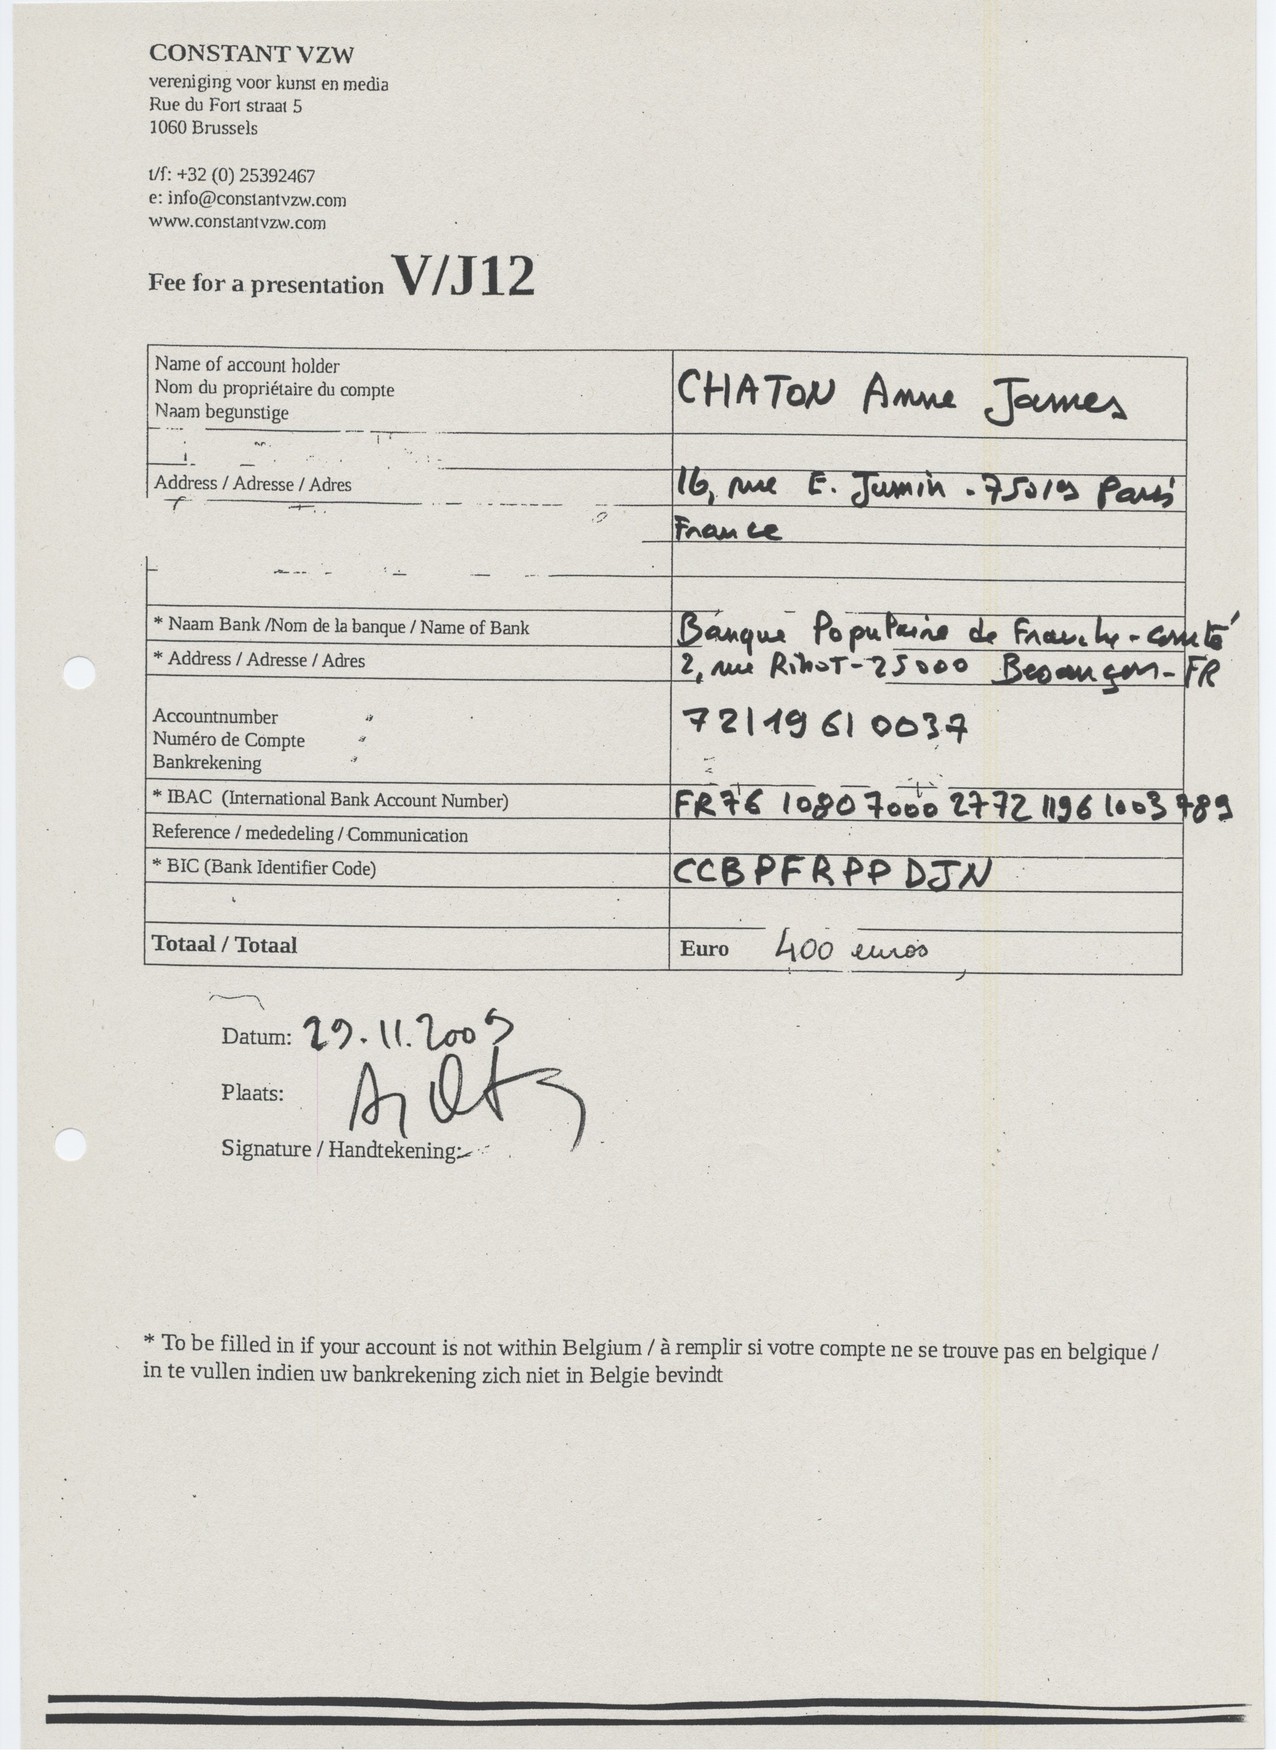 CONSTANT VZW
vereniging voor kunst en media
Rue du Fort straat 5
1060 Brussels
t/f: +32 (0) 25392467
e: info@constantvzw.com
www.constantvzw.com
Fee for a presentation V/J12
Name of account holder
Nom du propriétaire du compte
Naam begunstige
CHATON Anne James
Address / Adresse / Adres
16, rue E. Jumin - 75019 Paris
France
* Naam Bank /Nom de la banque / Name of Bank
Banque Populaire de Franche-comté
* Address / Adresse / Adres
2, rue Ribot - 25000 Besançon - FR
Accountnumber
Numéro de Compte
Bankrekening
72119610037
* IBAC (International Bank Account Number)
FR76 10807000 2772 1196 1003 789
Reference / mededeling / Communication
* BIC (Bank Identifier Code)
CCBPFRPP DJN
Totaal / Totaal
Euro 400 euros
Datum: 29.11.2009
Plaats:
Signature / Handtekening:
* To be filled in if your account is not within Belgium / à remplir si votre compte ne se trouve pas en belgique /
in te vullen indien uw bankrekening zich niet in Belgie bevindt